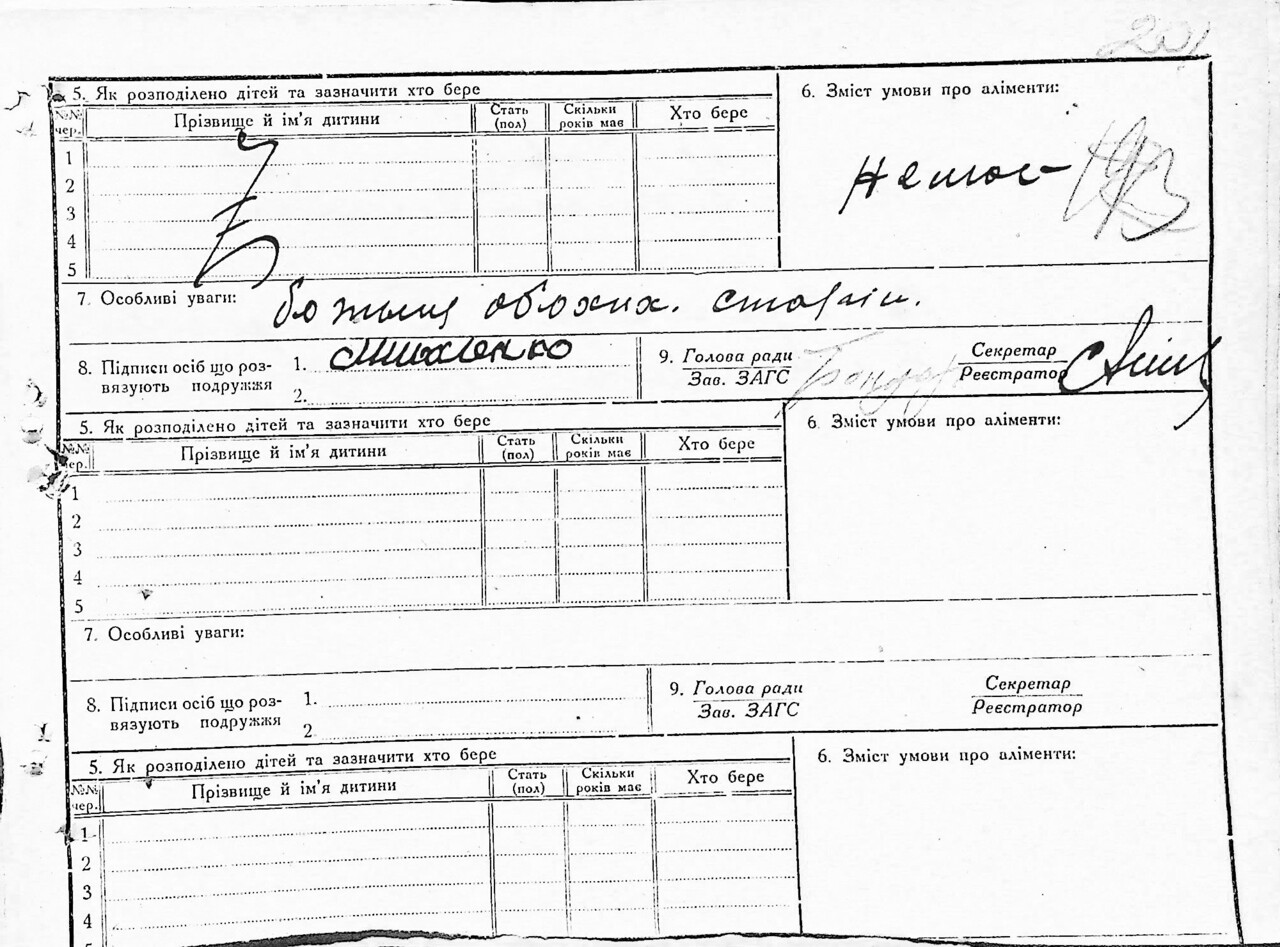 201
5. Як розподілено дітей та зазначити хто бере
6. Зміст умови про аліменти:
№№ чер. Прізвище й ім'я дитини Стать (пол) Скільки років має Хто бере
1
2
3
4
5
7. Особливі уваги: сторін.
8. Підписи осіб що роз-
вязують подружжя
1.
2.
9. Голова ради
Зав. ЗАГС
Секретар
Реєстратор
5. Як розподілено дітей та зазначити хто бере
6. Зміст умови про аліменти:
№№ чер. Прізвище й ім'я дитини Стать (пол) Скільки років має Хто бере
1
2
3
4
5
7. Особливі уваги:
8. Підписи осіб що роз-
вязують подружжя
1.
2.
9. Голова ради
Зав. ЗАГС
Секретар
Реєстратор
5. Як розподілено дітей та зазначити хто бере
6. Зміст умови про аліменти:
№№ чер. Прізвище й ім'я дитини Стать (пол) Скільки років має Хто бере
1
2
3
4